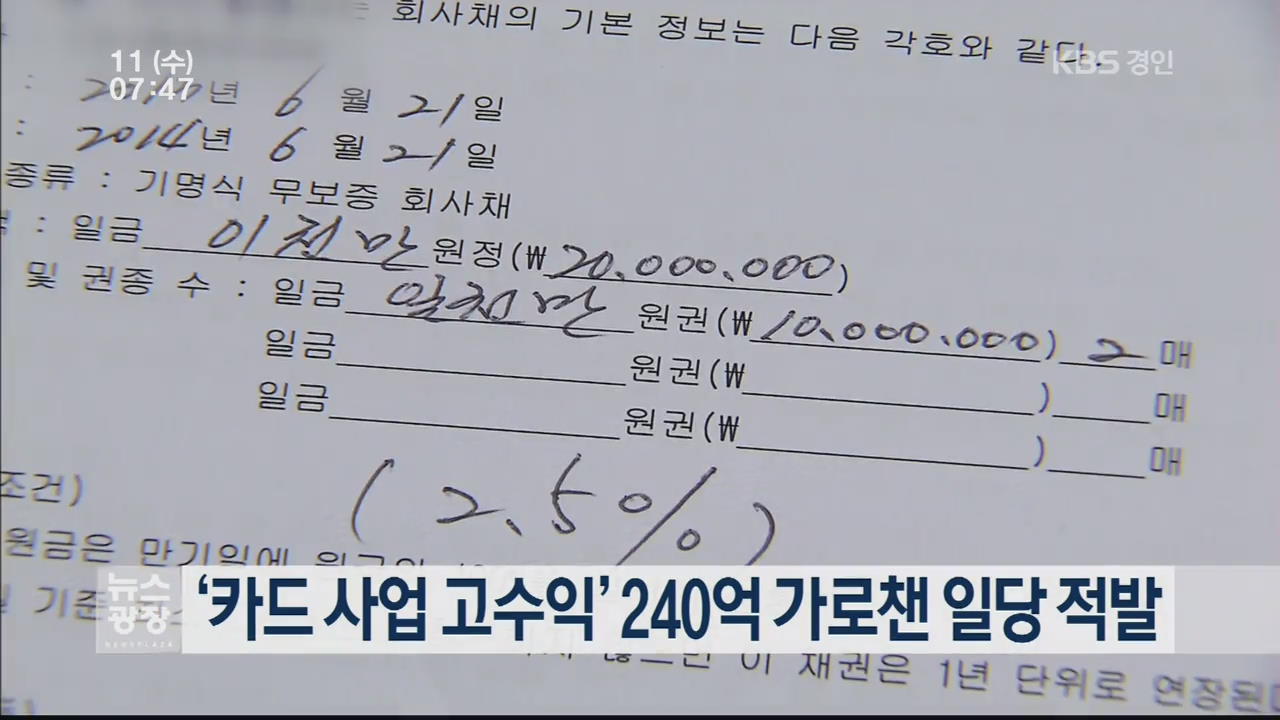 회사채의 기본 정보는 다음 각호와 같다.
11 (수)
07:47
KBS 경인
: 년 6 월 21 일
: 2014 년 6 월 21 일
종류 : 기명식 무보증 회사채
: 일금 이천만 원정(₩20.000.000)
및 권종 수 : 일금 일천만 원권(₩10.000.000) 2 매
일금 원권(₩ ) 매
일금 원권(₩ ) 매
조건)
(2.5%)
원금은 만기일에
기준
뉴스광장
NEWSPLAZA
‘카드 사업 고수익’ 240억 가로챈 일당 적발
이 채권은 1년 단위로 연장된다